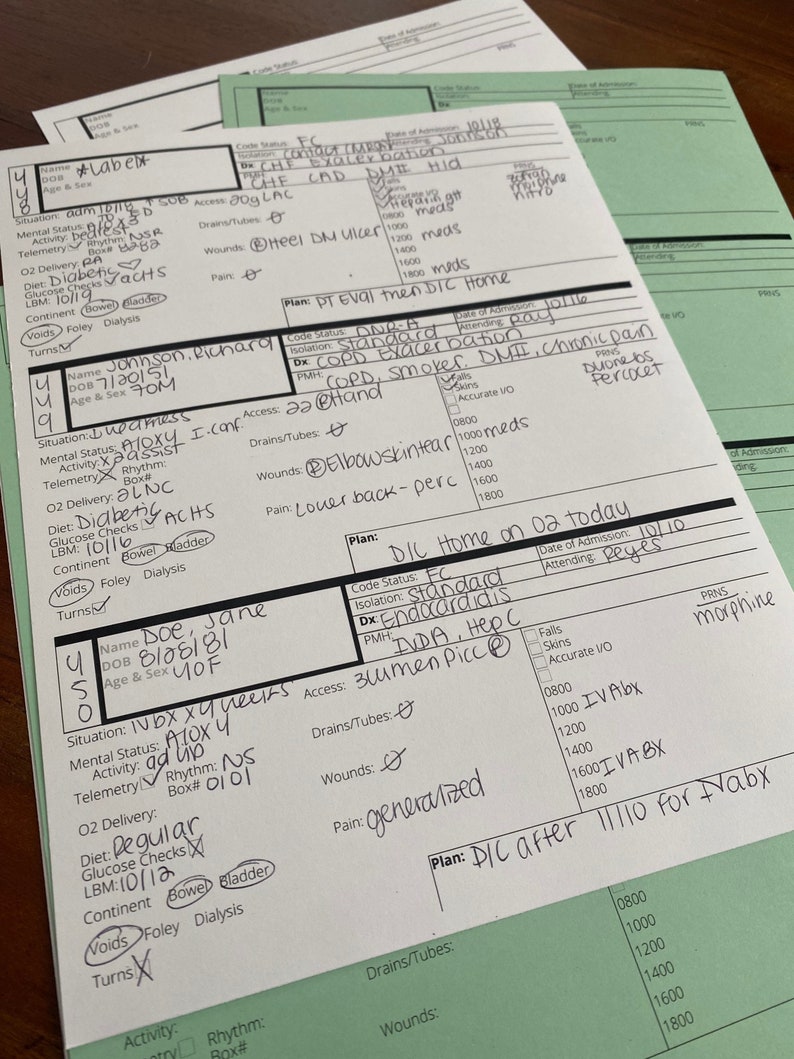 Code Status:
Date of Admission:
Attending:
Name
DOB
Age & Sex
PRNS
Name
DOB
Age & Sex
Code Status:
Isolation:
Dx:
Date of Admission:
Attending:
PRNS
Accurate I/O
448
Name *Label*
DOB
Age & Sex
Code Status: FC
Date of Admission: 10/18
Isolation: Contact (MRSA)
Attending: Johnson
Dx: CHF Exacerbation
PMH: CHF CAD DMII HLD
Situation: adm 10/18 ↑ SOB TO ED
Mental Status: A/O x3
Activity: bedrest
Telemetry ✓ Rhythm: NSR
Box# 8282
O2 Delivery: RA
Diet: Diabetic ♡
Glucose Checks ✓ ACHS
LBM: 10/19
Continent Bowel Bladder
Voids Foley Dialysis
Turns ✓
Access: 20g LAC
Drains/Tubes: Ø
Wounds: Ⓡ Heel DM Ulcer
Pain: Ø
✓ Falls
✓ Skins
✓ Accurate I/O
✓ Heparin gtt
0800 meds
1000
1200 meds
1400
1600
1800 meds
PRNS
zofran
morphine
nitro
Plan: PT Eval then D/C Home
449
Name Johnson, Richard
DOB 7/20/51
Age & Sex 70M
Code Status: DNR-A
Date of Admission: 10/16
Isolation: Standard
Attending: Ray
Dx: COPD Exacerbation
PMH: COPD, smoker, DMII, chronic pain
Situation: weakness
Mental Status: A/OX4 I. conf.
Activity: x2assist
Telemetry X Rhythm:
Box#
O2 Delivery: 2LNC
Diet: Diabetic
Glucose Checks ✓ ACHS
LBM: 10/16
Continent Bowel Bladder
Voids Foley Dialysis
Turns ✓
Access: 22 Ⓡ Hand
Drains/Tubes: Ø
Wounds: Ⓡ Elbow skin tear
Pain: Lower back - perc
✓ Falls
✓ Skins
Accurate I/O
0800
1000 meds
1200
1400
1600
1800
PRNS
Duonebs
Percocet
Plan: D/C Home on O2 today
450
Name Doe, Jane
DOB 8/28/81
Age & Sex 40F
Code Status: FC
Date of Admission: 10/10
Isolation: Standard
Attending: Reyes
Dx: Endocardidis
PMH: IVDA, Hep C
Situation: IVbx x 4 weeks
Mental Status: A/OX4
Activity: ad lib
Telemetry ✓ Rhythm: NS
Box# 0101
O2 Delivery:
Diet: Regular
Glucose Checks X
LBM: 10/12
Continent Bowel Bladder
Voids Foley Dialysis
Turns X
Access: 3lumen Picc Ⓡ
Drains/Tubes: Ø
Wounds: Ø
Pain: generalized
Falls
Skins
Accurate I/O
0800
1000 IVAbx
1200
1400
1600 IVABX
1800
PRNS
morphine
Plan: D/C after 11/10 for IVabx
Date of Admission:
PRNS
Drains/Tubes:
Wounds:
Activity:
Rhythm:
Box#
0800
1000
1200
1400
1600
1800